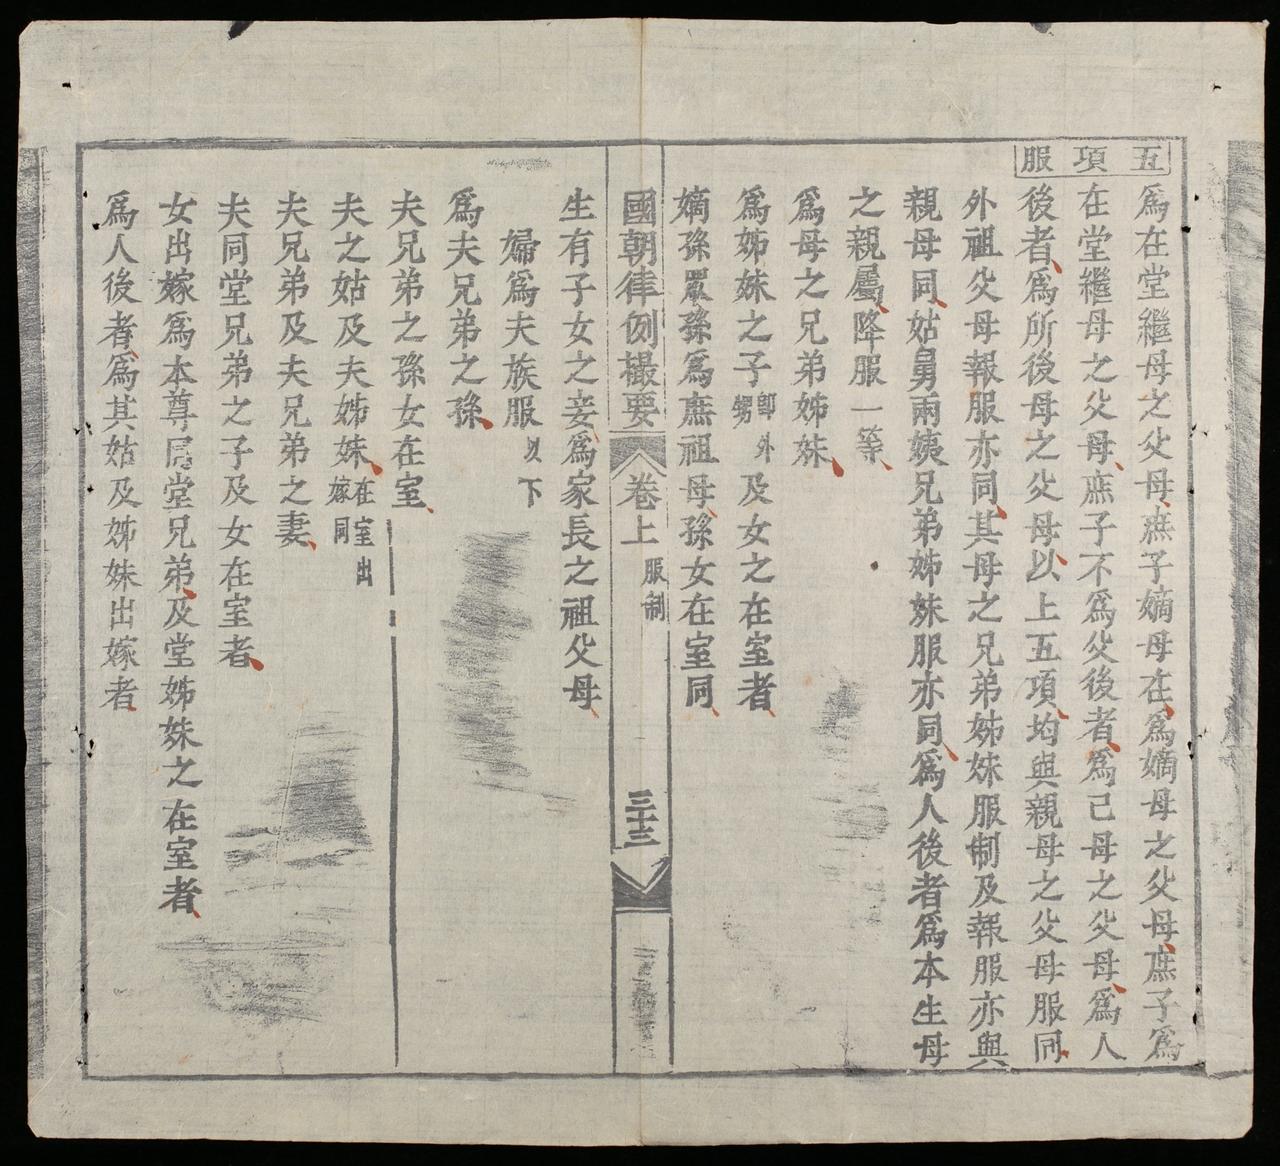 五項服
爲在堂繼母之父母庶子嫡母在爲嫡母之父母庶子爲
在堂繼母之父母庶子不爲父後者爲己母之父母爲人
後者爲所後母之父母以上五項均與親母之父母服同
外祖父母報服亦同其母之兄弟姊妹服制及報服亦與
親母同姑舅兩姨兄弟姊妹服亦同爲人後者爲本生母
之親屬降服一等
爲母之兄弟姊妹
爲姊妹之子即外甥及女之在室者
嫡孫眾孫爲庶祖母孫女在室同
國朝律例撮要 卷上 服制 三十三
生有子女之妾爲家長之祖父母
婦爲夫族服以下
爲夫兄弟之孫
夫兄弟之孫女在室
夫之姑及夫姊妹在室出嫁同
夫兄弟及夫兄弟之妻
夫同堂兄弟之子及女在室者
女出嫁爲本尊屬堂兄弟及堂姊妹之在室者
爲人後者爲其姑及姊妹出嫁者